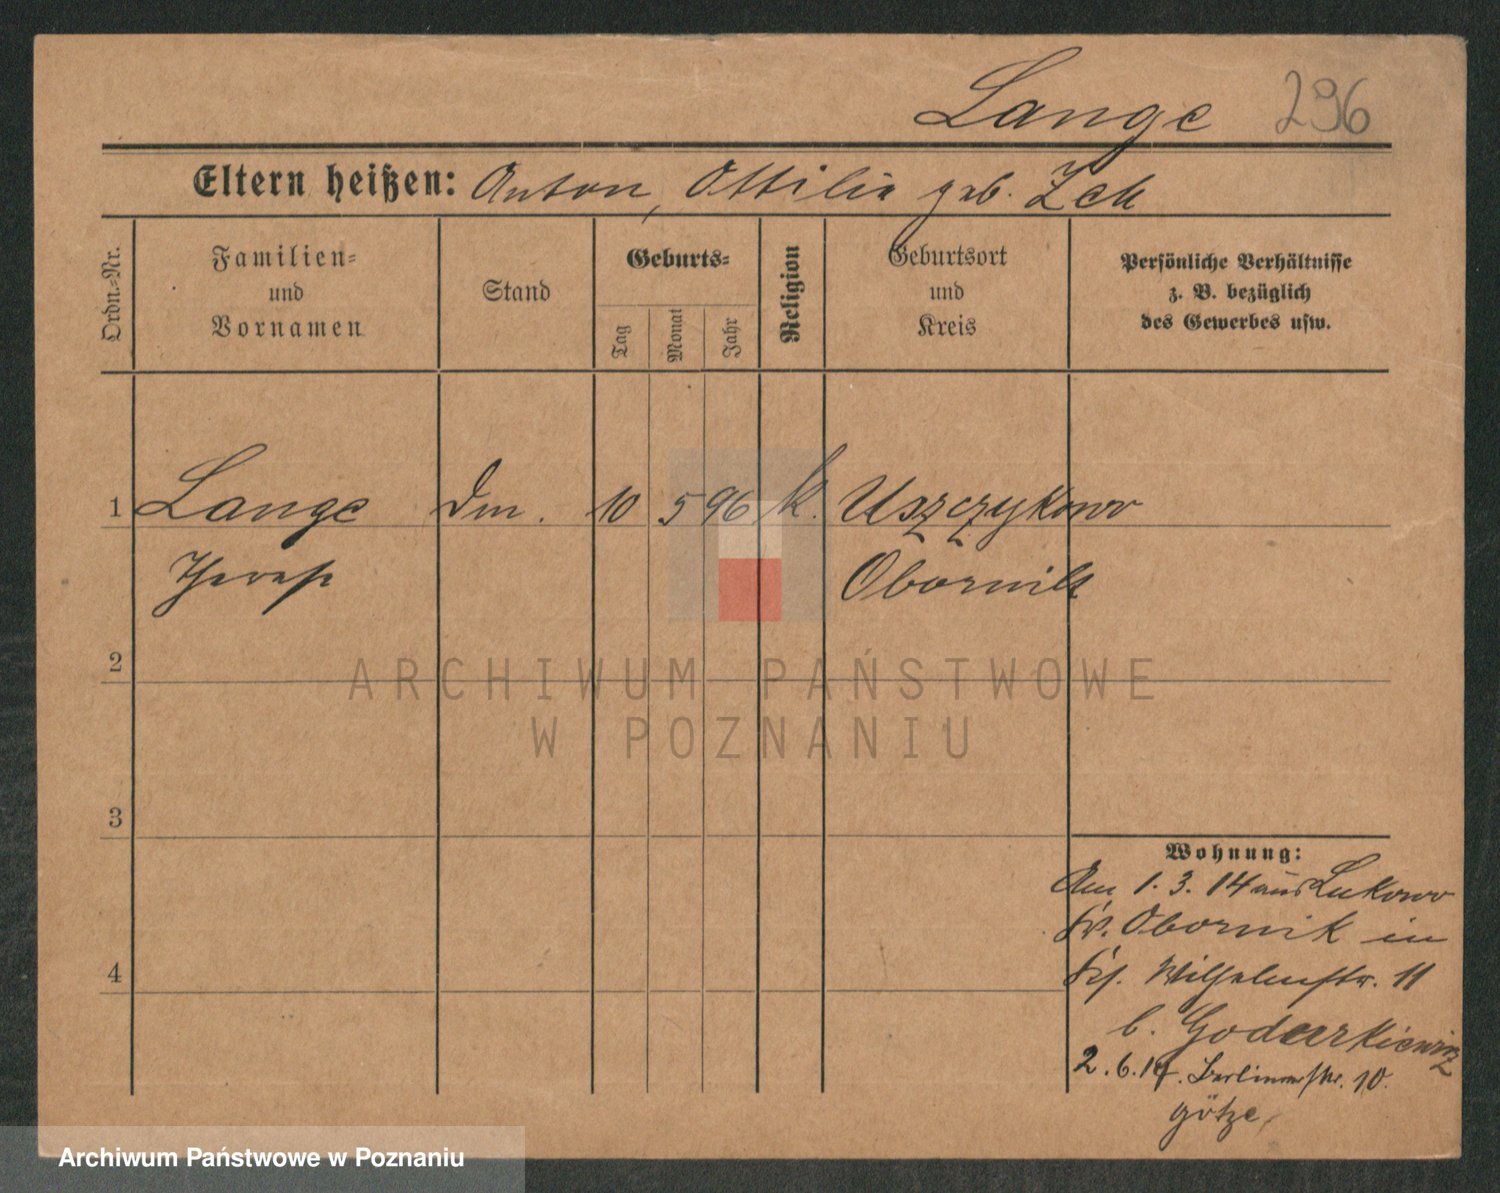 Lange 296
Eltern heißen: Anton, Ottilie geb. Zek
Ordn.-Nr.
Familien-
und
Vornamen
Stand
Geburts-
Tag
Monat
Jahr
Religion
Geburtsort
und
Kreis
Persönliche Verhältnisse
z. B. bezüglich
des Gewerbes usw.
1 Lange Dm. 10 5 96 k. Uszczykowo
Theresie Obornik
2
ARCHIWUM PAŃSTWOWE
W POZNANIU
3
Wohnung:
Am 1. 3. 14 aus Lukowo
Kr. Obornik in
Wilhelmstr. 11
4
b. Godurkiewicz
2. 6. 14. Berlinerstr. 10.
Götze
Archiwum Państwowe w Poznaniu